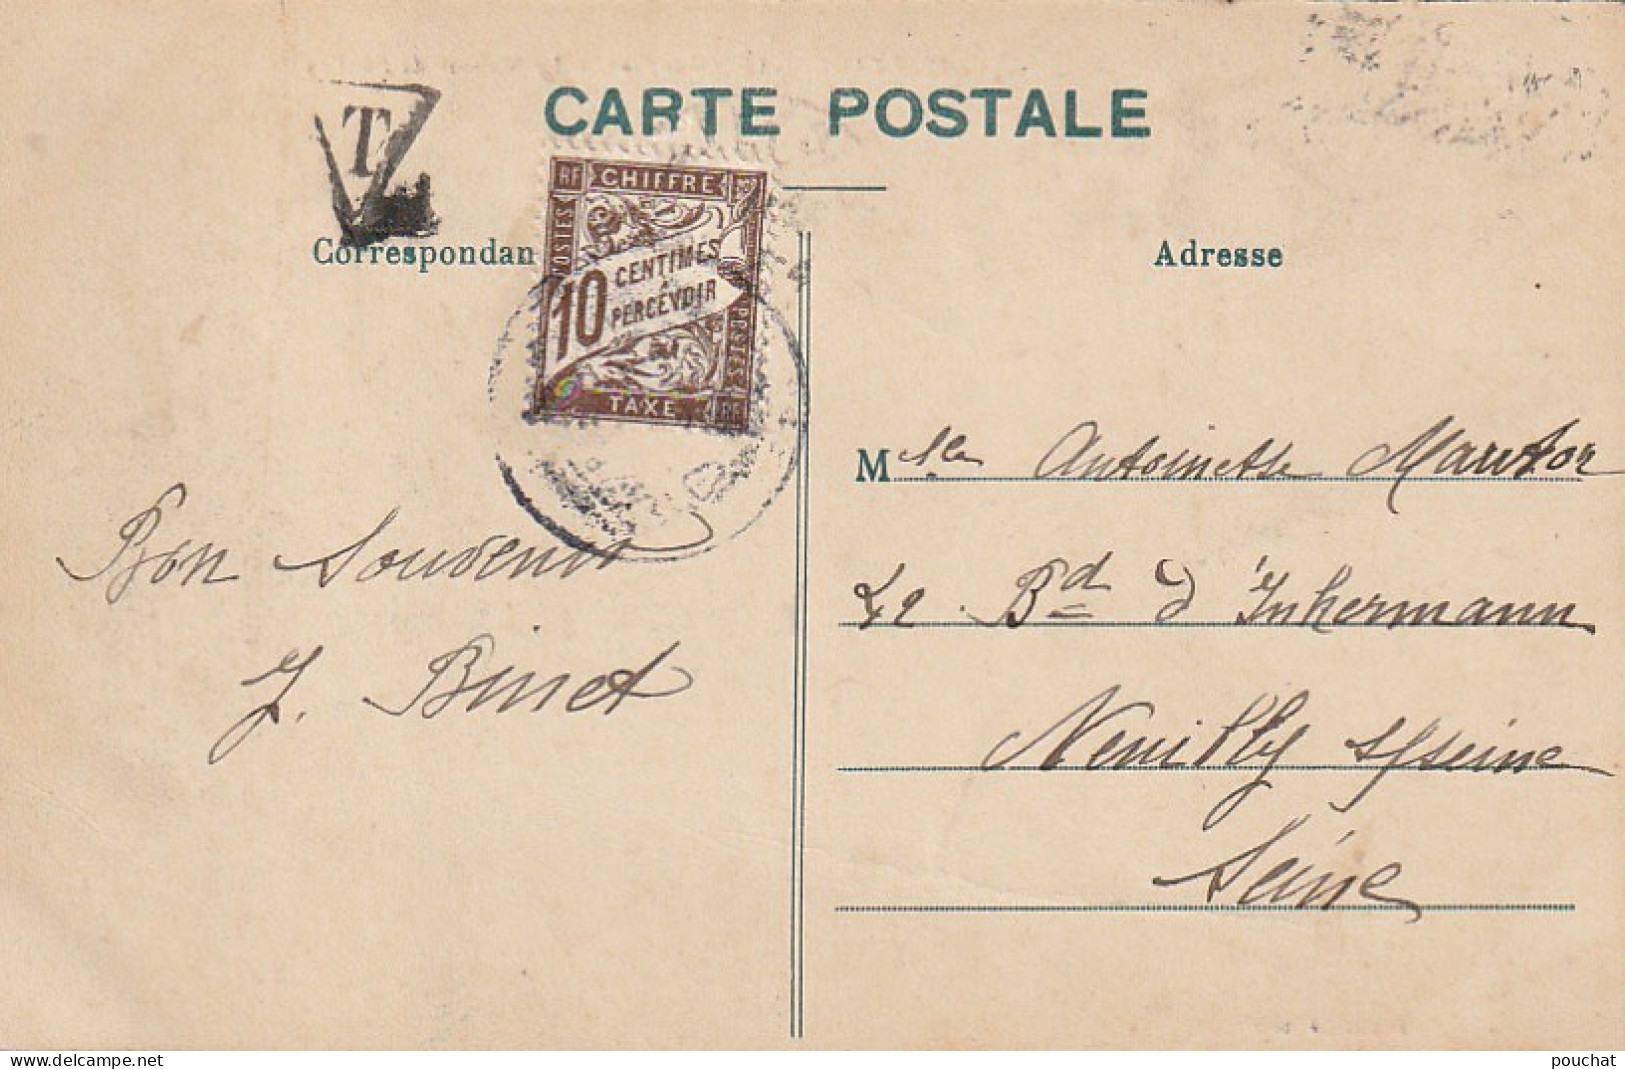 CARTE POSTALE
T
RF CHIFFRE RF
POSTES
10 CENTIMES
À
PERCEVOIR
POSTES
TAXE RF
Correspondan
Adresse
Bon Souvenir
J. Binet
Mlle Antoinette
42 Bd d'Inkermann
Neuilly s/Seine
Seine
www.delcampe.net
pouchat